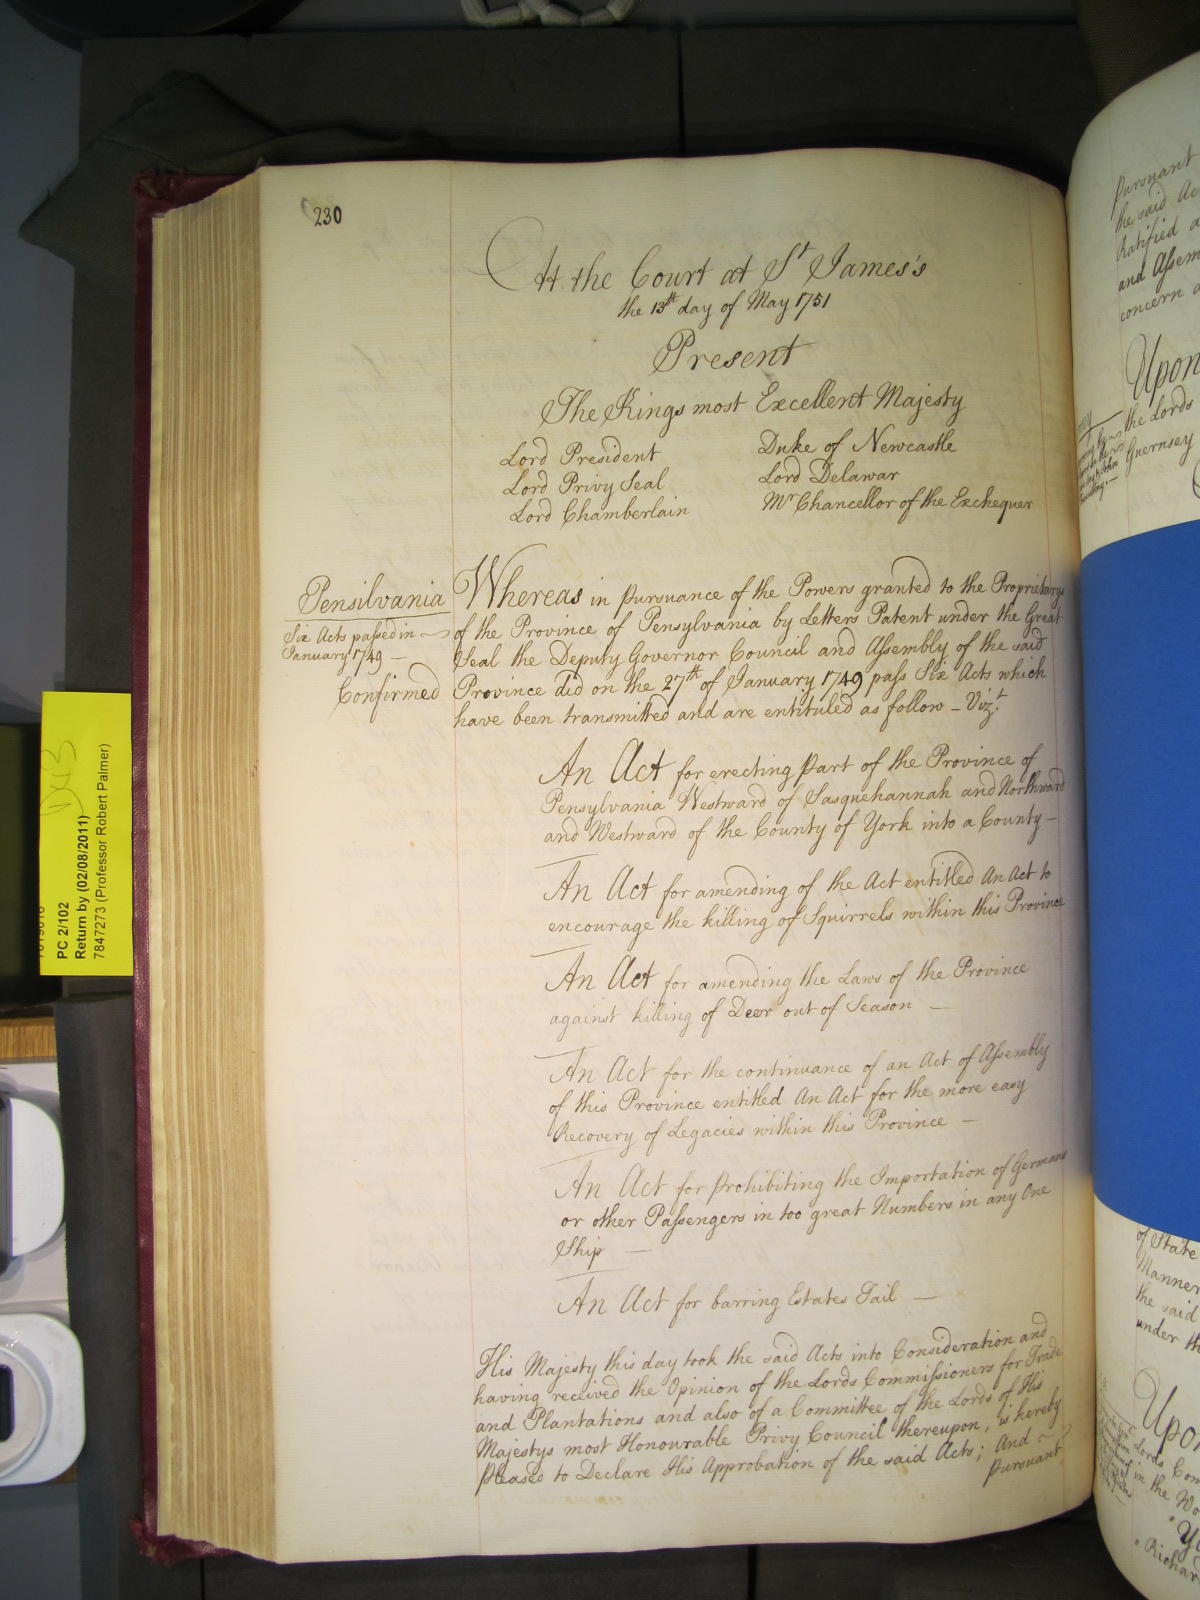 230
At the Court at St James's
the 13th day of May 1751
Present
The Kings most Excellent Majesty
Lord President
Lord Privy Seal
Lord Chamberlain
Duke of Newcastle
Lord Delawar
Mr Chancellor of the Exchequer
Pensilvania
Six Acts passed in
January 1749 —
Confirmed
Whereas in pursuance of the Powers granted to the Proprietarys
of the Province of Pensylvania by Letters Patent under the Great
Seal the Deputy Governor Council and Assembly of the said
Province did on the 27th of January 1749 pass Six Acts which
have been transmitted and are entituled as follow – Vizt.
An Act for erecting Part of the Province of
Pensylvania Westward of Sasquehannah and Northward
and Westward of the County of York into a County —
An Act for amending of the Act entitled An Act to
encourage the killing of Squirrels within this Province
An Act for amending the Laws of the Province
against killing of Deer out of Season —
An Act for the continuance of an Act of Assembly
of this Province entitled An Act for the more easy
Recovery of Legacies within this Province —
An Act for prohibiting the Importation of Germans
or other Passengers in too great Numbers in any One
Ship —
An Act for barring Estates Tail —
His Majesty this day took the said Acts into Consideration and
having received the Opinion of the Lords Commissioners for Trade
and Plantations and also of a Committee of the Lords of His
Majestys most Honourable Privy Council thereupon, is hereby
pleased to Declare His Approbation of the said Acts; And
pursuant
PC 2/102
Return by (02/08/2011)
7847273 (Professor Robert Palmer)
pursuant
the said Ac
Ratified a
and Assem
concern a
Upon
the Lords
Guernsey
of State
Manner
the said
under th
Upo
Lords Com
in the
Richar